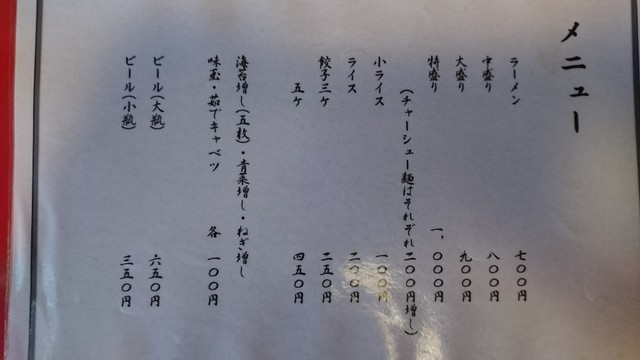 メニュー
ラーメン 七〇〇円
中盛り 八〇〇円
大盛り 九〇〇円
特盛り 一、〇〇〇円
(チャーシュー麺はそれぞれ二〇〇円増し)
小ライス 一〇〇円
ライス 二〇〇円
餃子三ケ 二五〇円
五ケ 四五〇円
海苔増し(五枚)・青菜増し・ねぎ増し
味玉・茹でキャベツ 各 一〇〇円
ビール(大瓶) 六五〇円
ビール(小瓶) 三五〇円